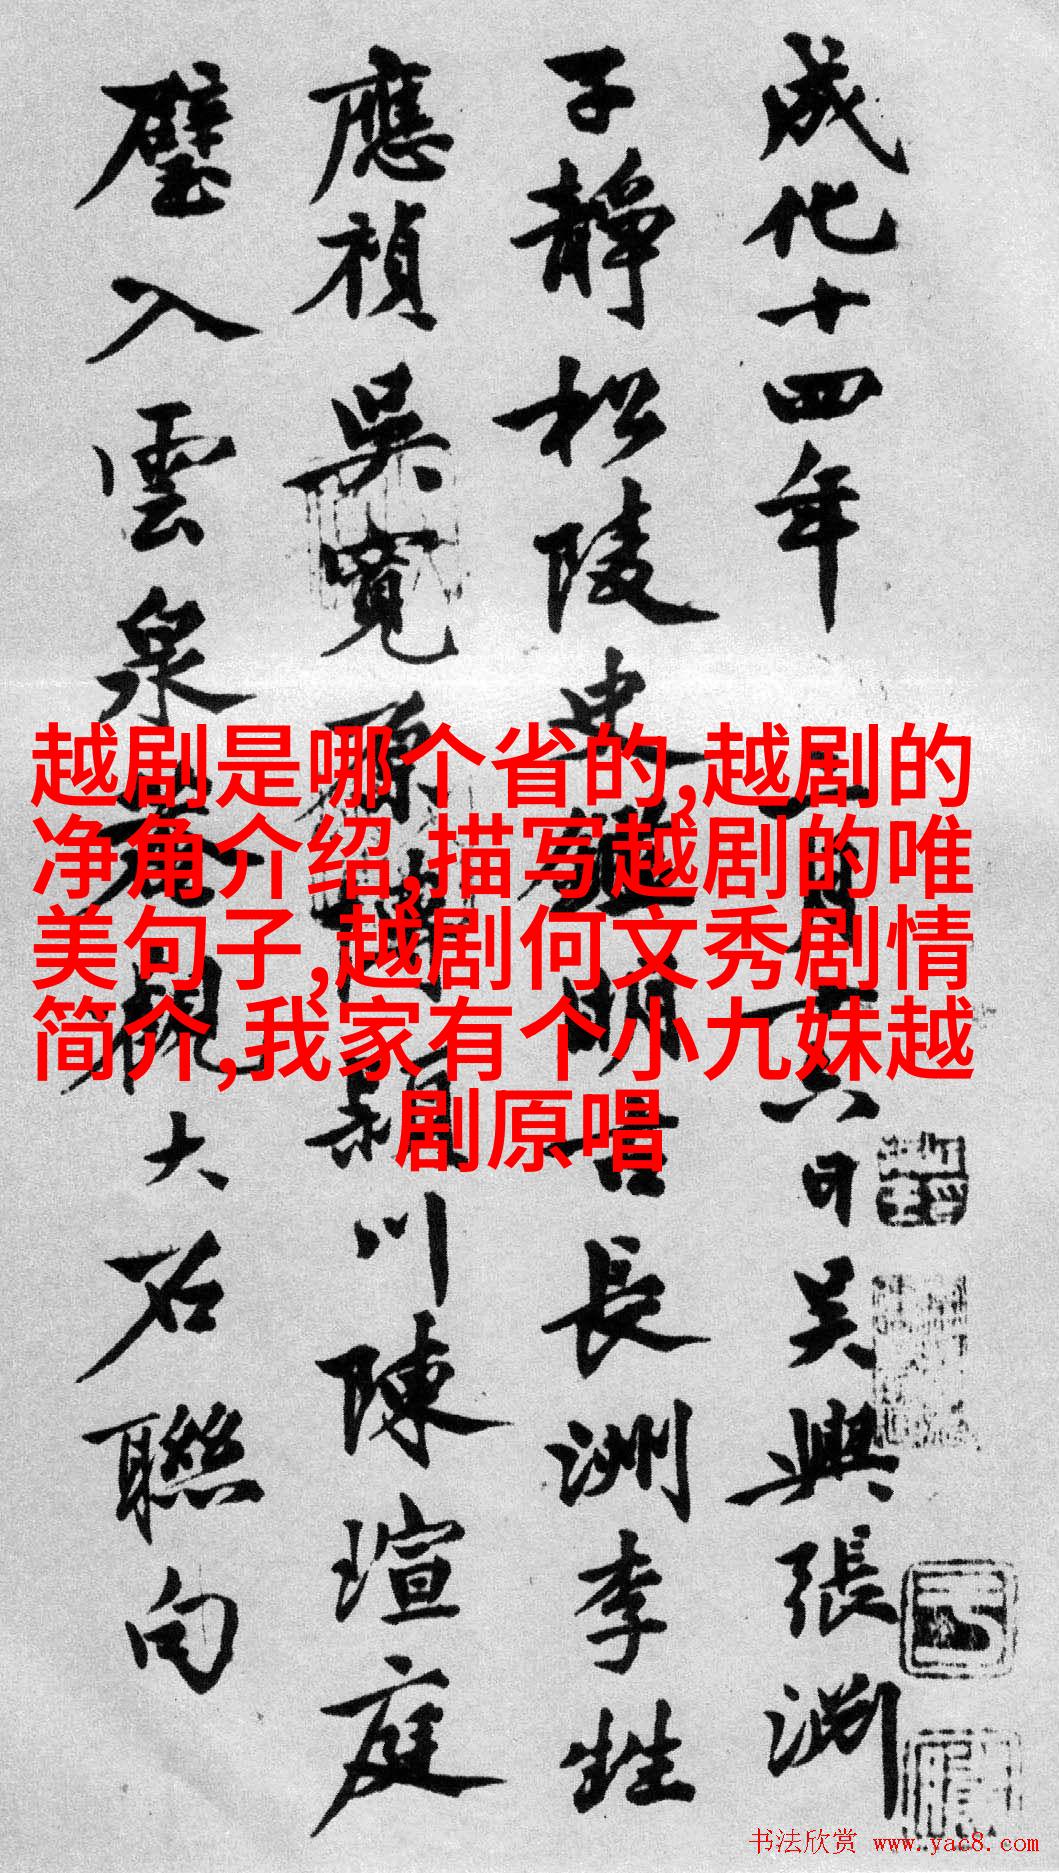 成化十四年十一月十六日吴興張淵
子靜松陵史經明古長洲李甡
應禎吳寬陳瑄庭
璧入雲泉菴觀大石聯句
越剧是哪个省的,越剧的
净角介绍,描写越剧的唯
美句子,越剧何文秀剧情
简介,我家有个小九妹越
剧原唱
书法欣赏 www.yac8.com